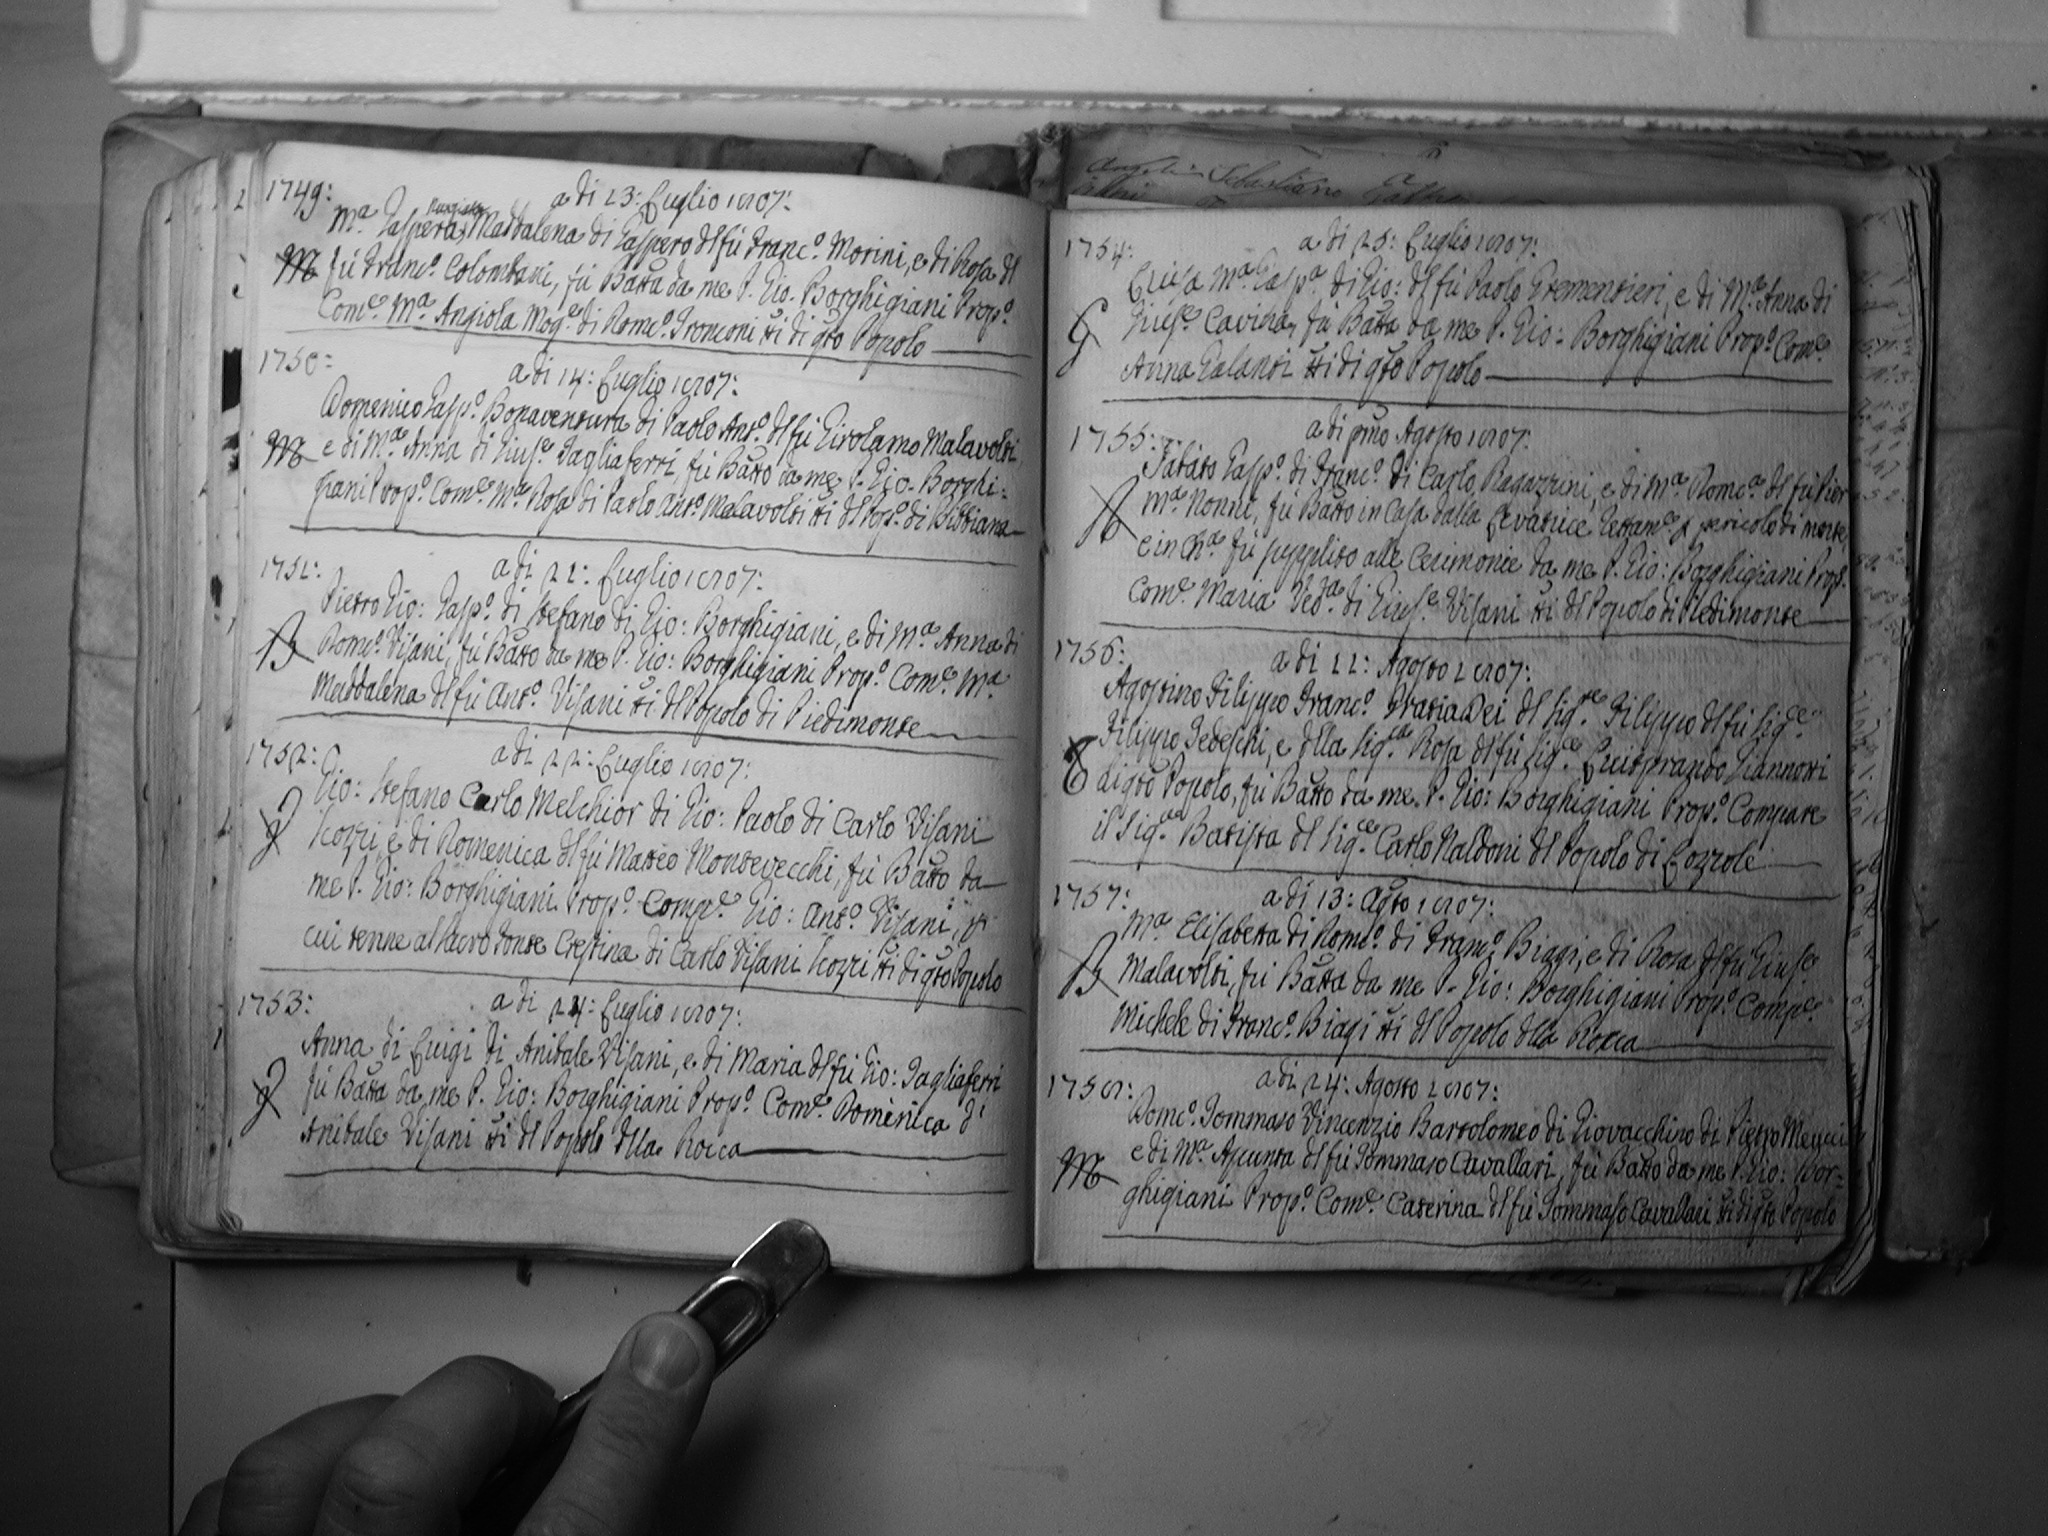 1749:
a di 13: Luglio 1807:
Mª Gaspera Maddalena di Gaspero del fú Francº Morini, e di Rosa del
M fú Francº Colombani, fú Batta da me P. Gio. Borghigiani Propº
Comᵉ Mª Angiola Mogᵉ di Domcº Tronconi tti di qto Popolo
1750:
a di 14: Luglio 1807:
Domenico Gaspº Bonaventura di Paolo Antº del fú Girolamo Malavolti
M e di Mª Anna di Giusᵉ Tagliaferri fú Batto da me P. Gio. Borghi=
giani Propº Comᵉ Mª Rosa di Paolo Antº Malavolti tti del Popº di Bibbiana
1751:
a di 21: Luglio 1807:
Pietro Gio: Gaspº di Stefano di Gio: Borghigiani, e di Mª Anna di
B Domcº Visani, fú Batto da me P. Gio: Borghigiani Propº Comᵉ Mª
Maddalena del fú Antº Visani tti del Popolo di Piedimonte
1752:
a di 22: Luglio 1807:
Gio: Stefano Carlo Melchior di Gio: Paolo di Carlo Visani
Scozzi e di Domenica del fú Matteo Montevecchi, fú Batto da
me P. Gio: Borghigiani Propº Compᵉ Gio: Antº Visani, p
cui tenne al sacro fonte Crestina di Carlo Visani Scozzi tti di qto Popolo
1753:
a di 24: Luglio 1807:
Anna di Luigi di Anibale Visani, e di Maria del fú Gio: Tagliaferri
fú Batta da me P. Gio: Borghigiani Propº Comᵉ Domenica d'
Anibale Visani tti del Popolo della Rocca
1754:
a di 25: Luglio 1807:
Luisa Mª Gaspª di Gio: del fú Paolo Grementieri, e di Mª Anna di
G Giusᵉ Cavina, fú Batta da me P. Gio: Borghigiani Propº Comᵉ
Anna Galanti tti di qto Popolo
1755:
a di pmo Agosto 1807:
Sabato Gaspº di Francº di Carlo Ragazzini, e di Mª Domcª del fú Pier
R Mª Nonni, fú Batto in Casa dalla Levatrice p pericolo di morte,
e in Chª fú supplito alle Cerimonie da me P. Gio: Borghigiani Propº
Comᵉ Maria Vedª di Giusᵉ Visani tti del Popolo di Piedimonte
1756:
a di 11: Agosto 1807:
Agostino Filippo Francº Grazia Dei del Sigʳᵉ Filippo del fú Sigʳᵉ
Filippo Tedeschi, e della Sigʳª Rosa del fú Sigʳᵉ Luitprando Giannotti
di qto Popolo, fú Batto da me P. Gio: Borghigiani Propº Compare
il Sigʳᵉ Batista del Sigʳᵉ Carlo Naldoni del Popolo di Lozzole
1757:
a di 13: Agsto 1807:
Mª Elisabetta di Domcº di Francº Biagi, e di Rosa del fú Giusᵉ
B Malavolti, fú Batta da me P. Gio: Borghigiani Propº Compᵉ
Michele di Francº Biagi tti del Popolo della Rocca
1758:
a di 24: Agosto 1807:
Domcº Tommaso Vincenzio Bartolomeo di Giovacchino di Pietro Meucci
M e di Mª Assunta del fú Tommaso Cavallari, fú Batto da me P. Gio: Bor=
ghigiani Propº Comᵉ Caterina del fú Tommaso Cavallari tti di qto Popolo